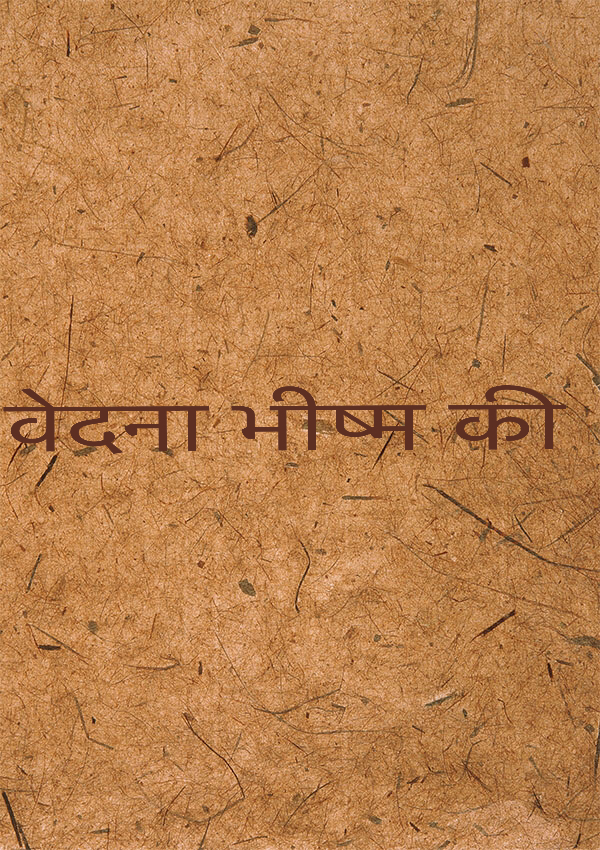 वेदना भीष्म की